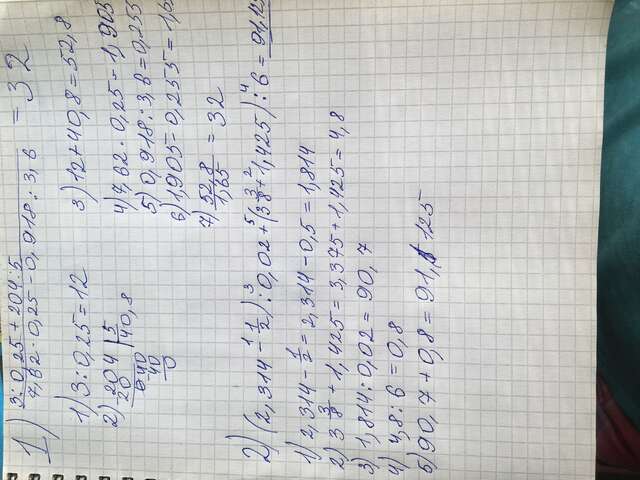 1) 3:0,25+204:5 / 7,62·0,25-0,918:3,6 = 32
1) 3:0,25=12
2) 204 | 5
20 40,8
040
40
0
3) 12+40,8=52,8
4) 7,62·0,25=1,905
5) 0,918:3,6=0,255
6) 1,905-0,255=1,6
7) 52,8/1,65 = 32
2) (2,314-1/2):0,02+(3 3/8+1,425):6=91,125
1) 2,314-1/2=2,314-0,5=1,814
2) 3 3/8+1,425=3,375+1,425=4,8
3) 1,814:0,02=90,7
4) 4,8:6=0,8
5) 90,7+0,8=91,125